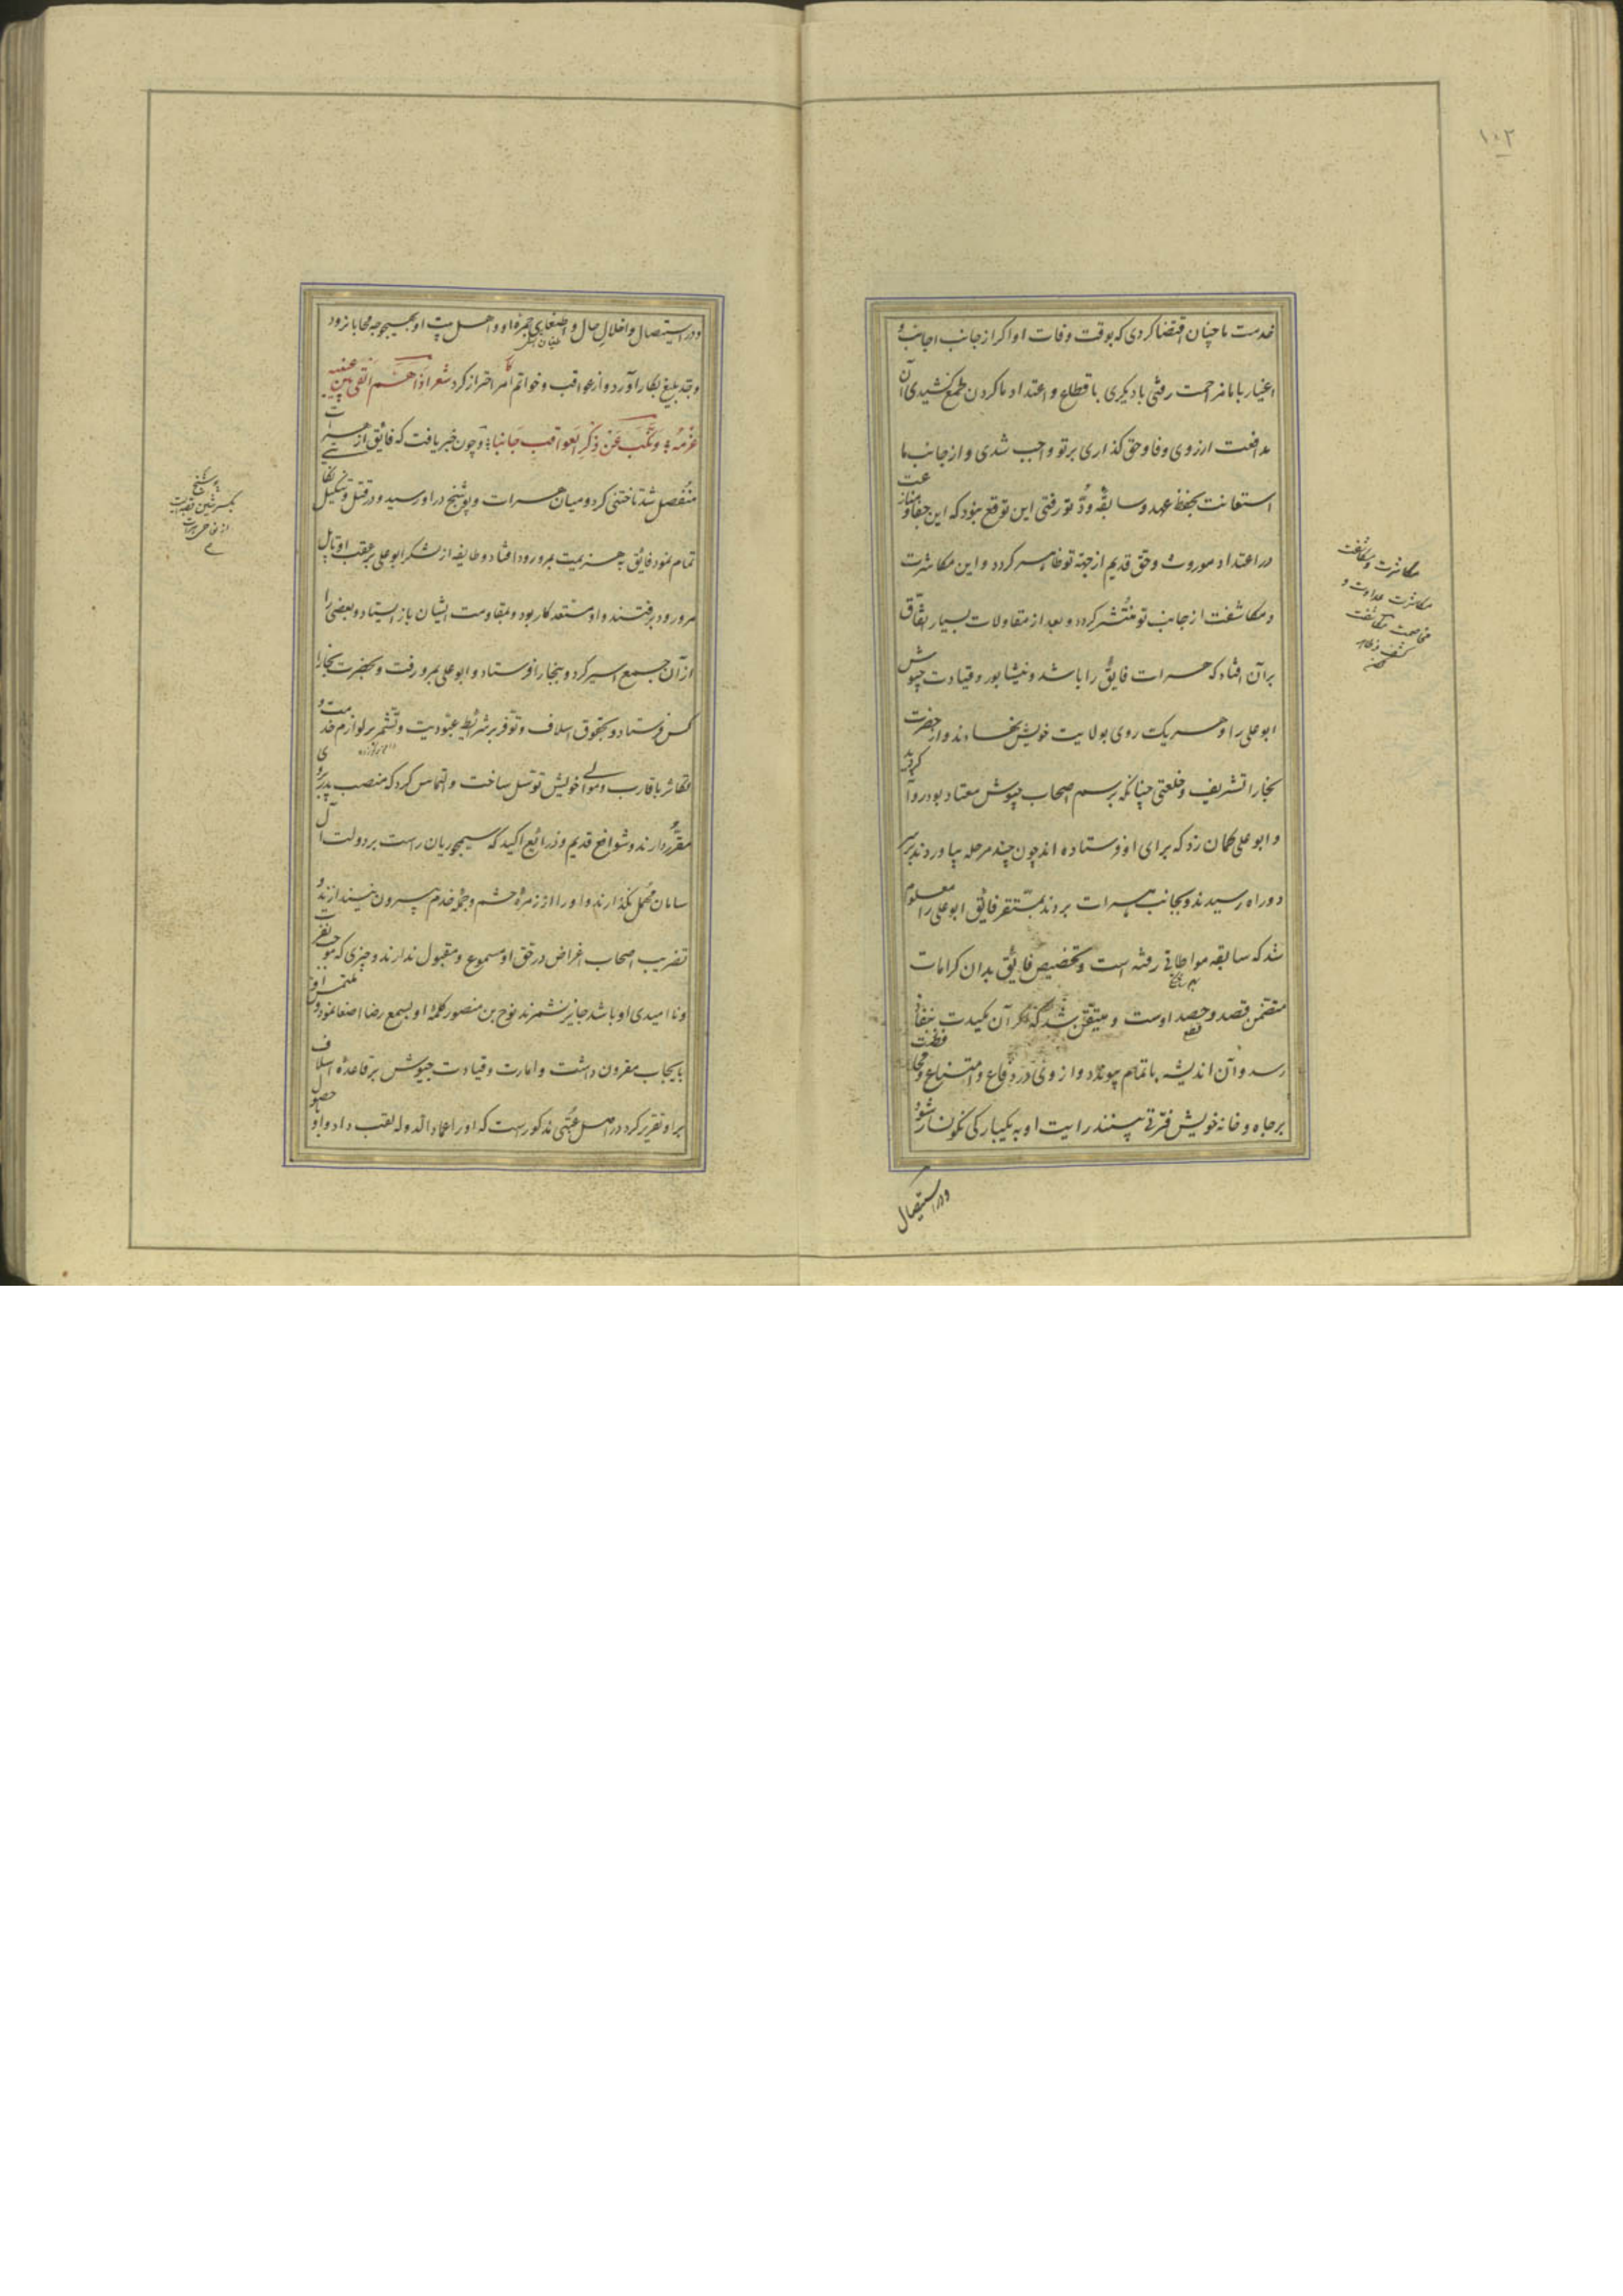 ۱۰۲
خدمت ما چنان اقتضا کردی که بوقت وفات او اکر از جانب اجانب و
اغیار با ما مزاحمت رفتی یا دیکری باقطاع و اعتداد ما کردن طمع کشیدی آن
مدافعت از روی وفا و حق کذاری بر تو واجب شدی و از جانب ما
استعانت بحفظ عهد و سابقه ودّ تو رفتی این توقع نبود که این جفا و منازعت
در اعتداد موروث و حق قدیم از جهة تو ظاهر کردد و این مکاشرت
و مکاشفت از جانب تو منتشر کردد و بعد از مقاولات بسیار اتفاق
بر آن افتاد که هرات فایق را باشد و نیشابور و قیادت جیوش
ابوعلی را و هر یک روی بولایت خویش نهادند و از حضرت
بخارا تشریف و خلعتی چنانکه برسم اصحاب جیوش معتاد بود روا کردند
و ابوعلی کمان زد که برای او فرستاده اند چون چند مرحله بیاوردند بر سر
دو راه رسیدند و بجانب هرات بردند بمستقر فایق ابوعلی را معلوم
شد که سابقه مواطاتی رفته است و تخصیص فایق بدان کرامات
متضمن قصد و حصد اوست و متیقن شد که اکر آن مکیدت بنفاذ
رسد و آن اندیشه باتمام پیوندد و از ونی در دفاع و امتناع و محافظت
بر جاه و خانه خویش فترتی بینند رایت او به یکبارکی نکونسار شود و
در استیصال
مکاشرت و مکاشفت
مکاشرت عداوت و
مخاصمت مکاشفت
کشف و ظاهر
و در استیصال و اخلال حال و اطفای جمره او و اهل بیت او بهیچوجه محابا نرود
وجد بلیغ بکار آورد و از عواقب و خواتم امر احتراز کرد شعر اذا هَمّ القی بین عینیه
عزمه و نکّب عن ذکر العواقب جانبا و چون خبر یافت که فایق از هرات
منفصل شد تاختنی کرد و میان هرات و پوشنج در او رسید و در قتل و تنکیل نکایتی
تمام نمود فایق بهزیمت بمرورود افتاد و طایفه از لشکر ابوعلی بر عقب او تا پل
مرورود برفتند و او مستعد کار بود و بمقاومت ایشان باز ایستاد و بعضی را
از آن جمع اسیر کرد و ببخارا فرستاد و ابوعلی بمرو رفت و بحضرت بخارا
کس فرستاد و بحقوق اسلاف و توفر بر شرایط عبودیت و تشمر بر لوازم خدمت و
تکاثر باقارب و موالی خویش توسل ساخت و التماس کرد که منصب پدر بر وی
مقرر دارند و شوافع قدیم و ذرائع اکید که سیمجوریان راست بر دولت آل
سامان مهمل نکذارند و او را از زمرهٔ حشم و جملهٔ خدم بیرون نیندازند و
تضریب اصحاب اغراض در حق او مسموع و مقبول ندارند و چیزی که موجب نفرت
و ناامیدی او باشد جایز نشمرند نوح بن منصور کلمهٔ او بسمع رضا اصغا نمود و ملتمس او
بایجاب مقرون داشت و امارت و قیادت جیوش بر قاعدهٔ اسلاف
بر او تقریر کرد در اصل عتبی مذکور است که او را عماد الدوله لقب داد و او بآ حصول
پوشنج
بکسر شین قصبه ایست
از نواحی هرات